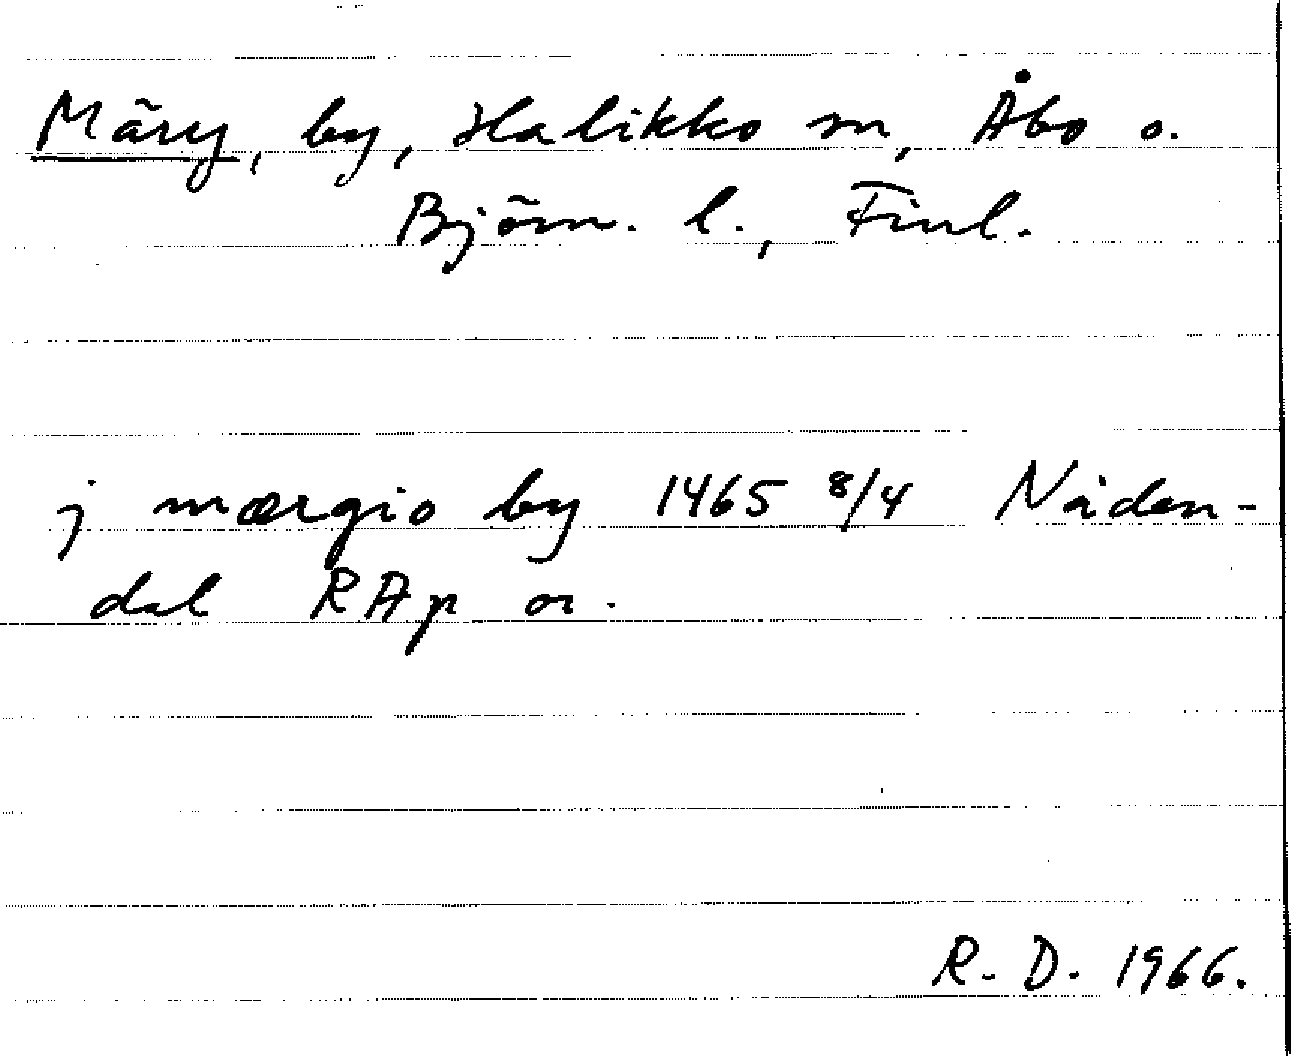 Märy, by, Halikko sn, Åbo o.
Björn. l., Finl.
j mærgio by 1465 8/4 Nåden-
dal RAp or.
R. D. 1966.